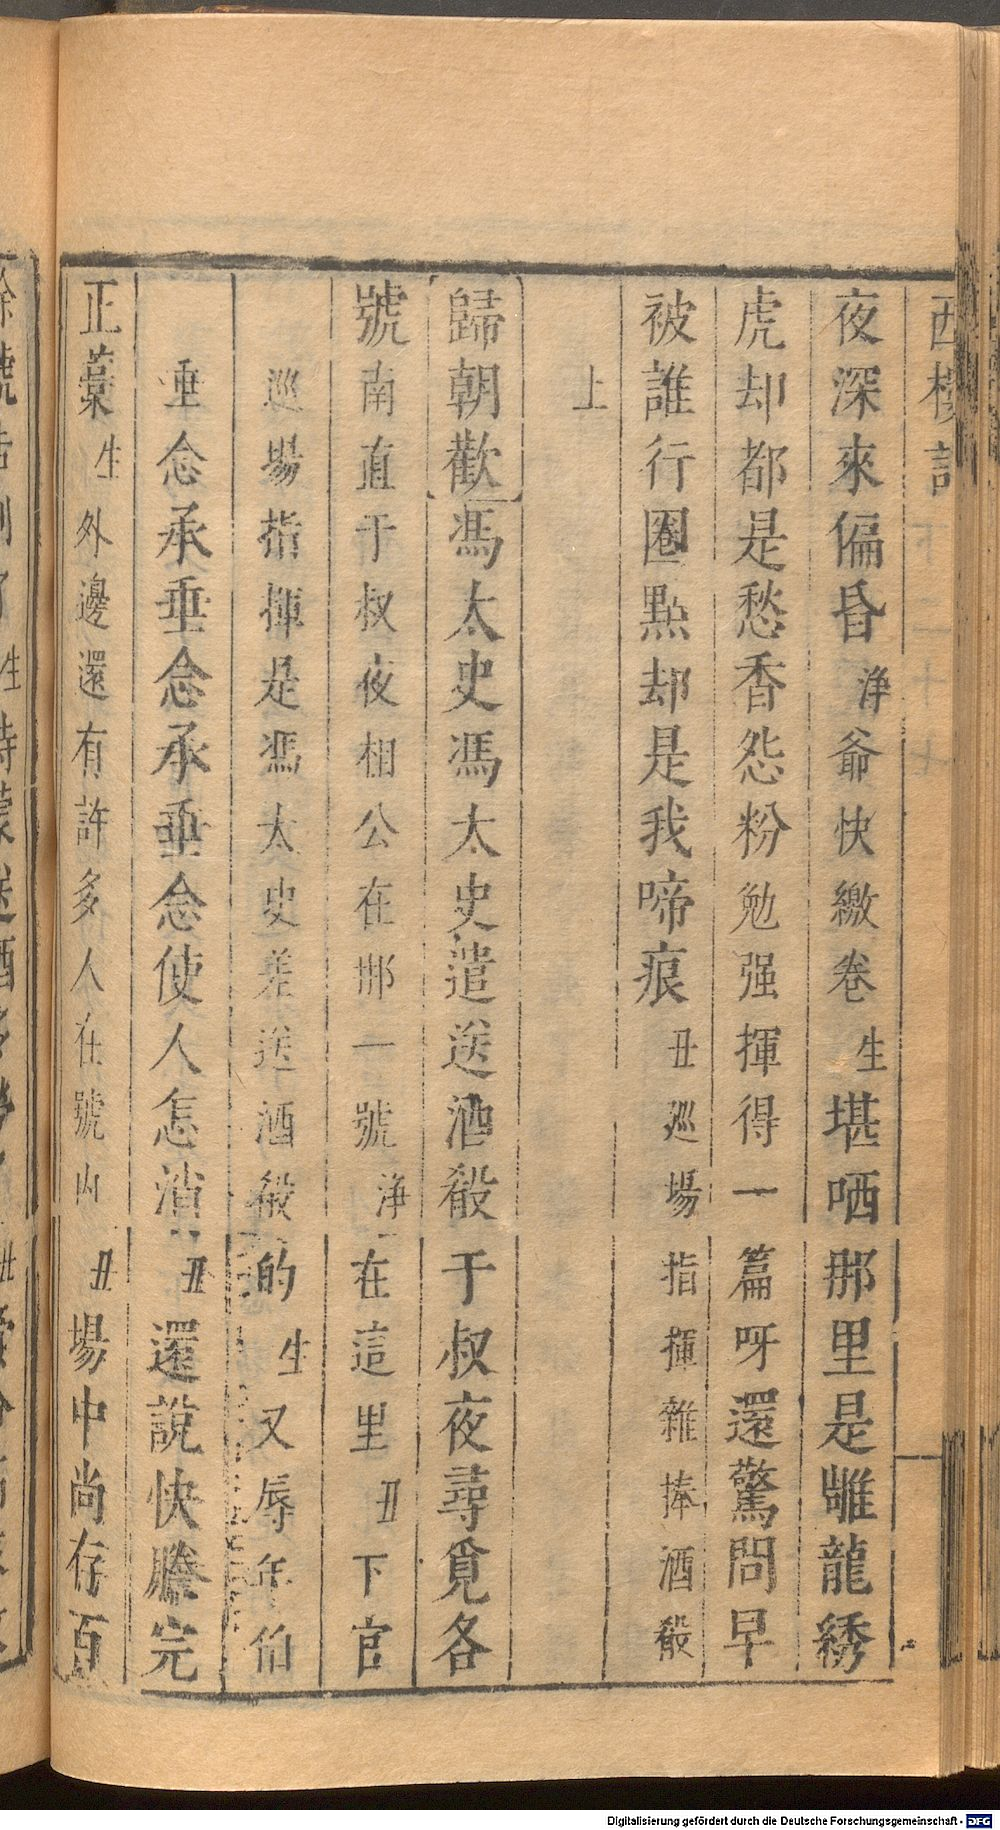 西樓記
夜深來偏昏淨爺快繳卷生堪哂那里是雕龍綉
虎却都是愁香怨粉勉强揮得一篇呀還驚問早
被誰行圈點却是我啼痕丑廵場指揮雜捧酒殽
上
歸朝歡馮太史馮太史遣送酒殽于叔夜尋覓各
號南直于叔夜相公在那一號淨在這里丑下官
巡場指揮是馮太史差送酒殽的生又辱年伯
垂念承垂念承垂念使人怎消丑還說快謄完
正藁生外邊還有許多人在號内丑場中尚存百
Digitalisierung gefördert durch die Deutsche Forschungsgemeinschaft - DFG